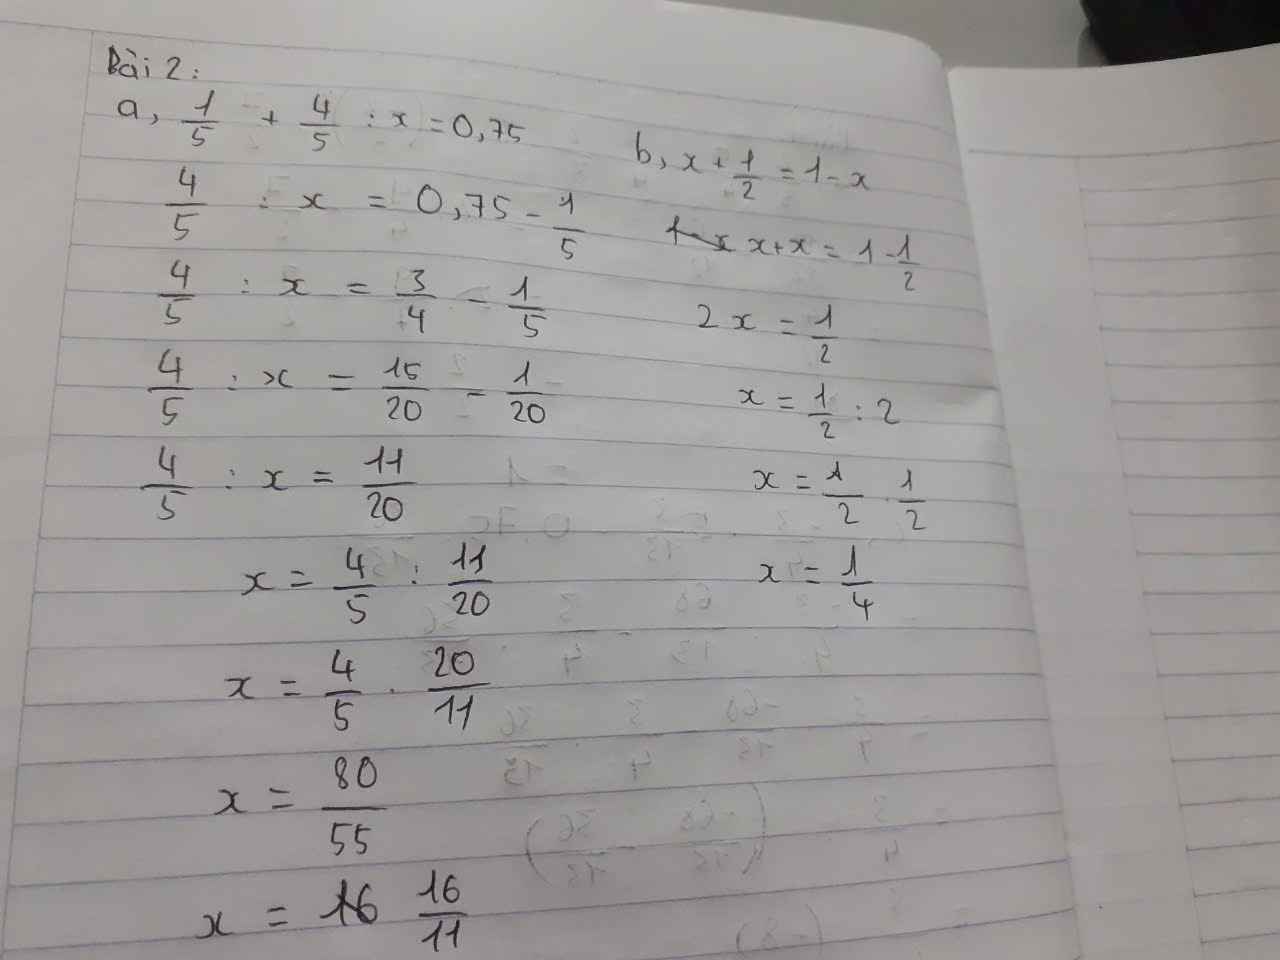 Bài 2:
a, 1/5 + 4/5 : x = 0,75
4/5 : x = 0,75 - 1/5
4/5 : x = 3/4 - 1/5
4/5 : x = 15/20 - 1/20
4/5 : x = 11/20
x = 4/5 : 11/20
x = 4/5 . 20/11
x = 80/55
x = 16/11
b, x + 1/2 = 1 - x
x + x = 1 - 1/2
2x = 1/2
x = 1/2 : 2
x = 1/2 . 1/2
x = 1/4